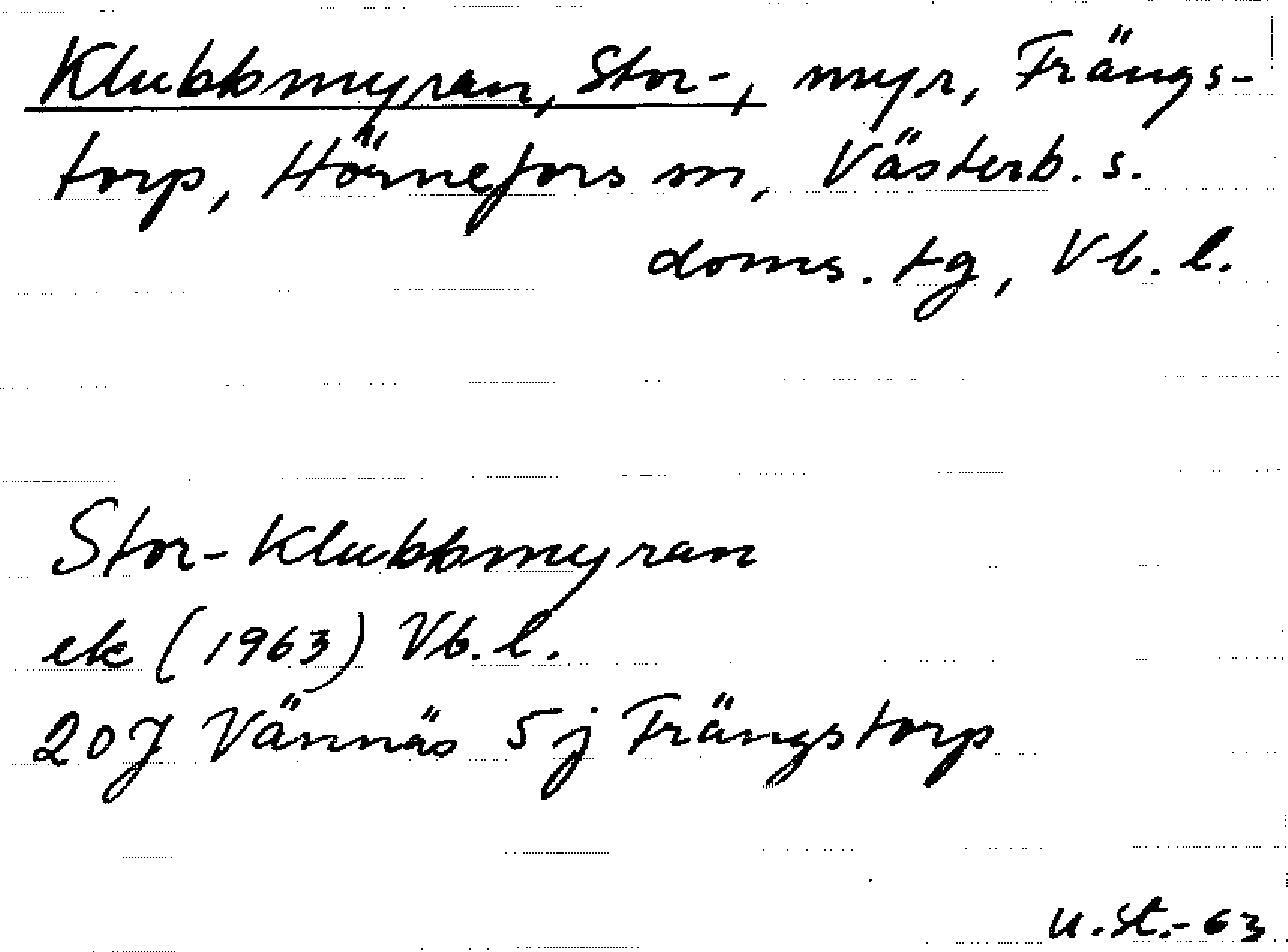 Klubbmyran, Stor-, myr, Frängs-
torp, Hörnefors sn, Västerb. s.
doms. tg, Vb. l.
Stor-Klubbmyran
ek (1963) Vb. l.
20J Vännäs 5j Frängstorp
U. St. -63